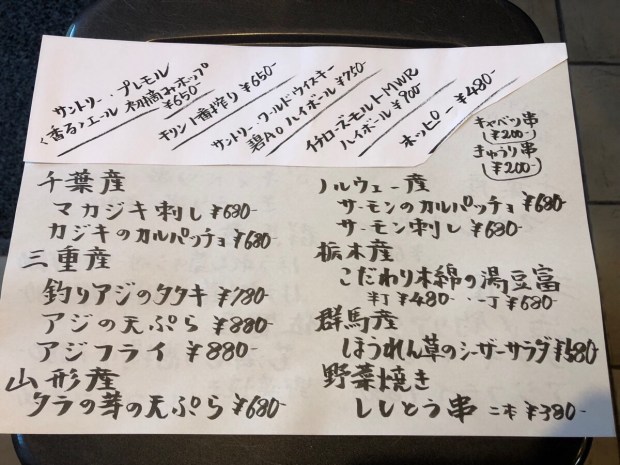 サントリー・プレモル
〈香る〉エール 初摘みホップ
¥650-
キリン一番搾り ¥650-
サントリー・ワールドウイスキー
碧Ao ハイボール ¥750
イチローズモルトMWR
ハイボール ¥900-
ホッピー ¥480-
キャベツ串
(¥200-)
きゅうり串
(¥200-)
千葉産
マカジキ刺し ¥680-
カジキのカルパッチョ ¥680
三重産
釣りアジのタタキ ¥780-
アジの天ぷら ¥880-
アジフライ ¥880-
山形産
タラの芽の天ぷら ¥680-
ノルウェー産
サーモンのカルパッチョ ¥680
サーモン刺し ¥680-
栃木産
こだわり木綿の湯豆富
半丁 ¥480- ・一丁 ¥680-
群馬産
ほうれん草のシーザーサラダ ¥580-
野菜焼き
ししとう串 二本 ¥380-